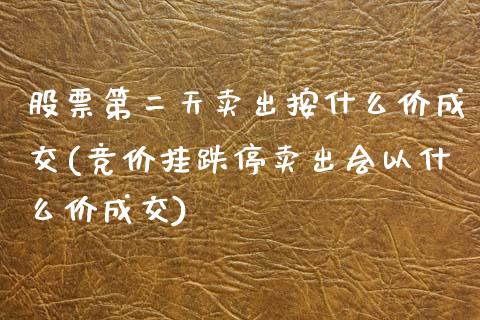 股票第二天卖出按什么价成
交(竞价挂跌停卖出会以什
么价成交)